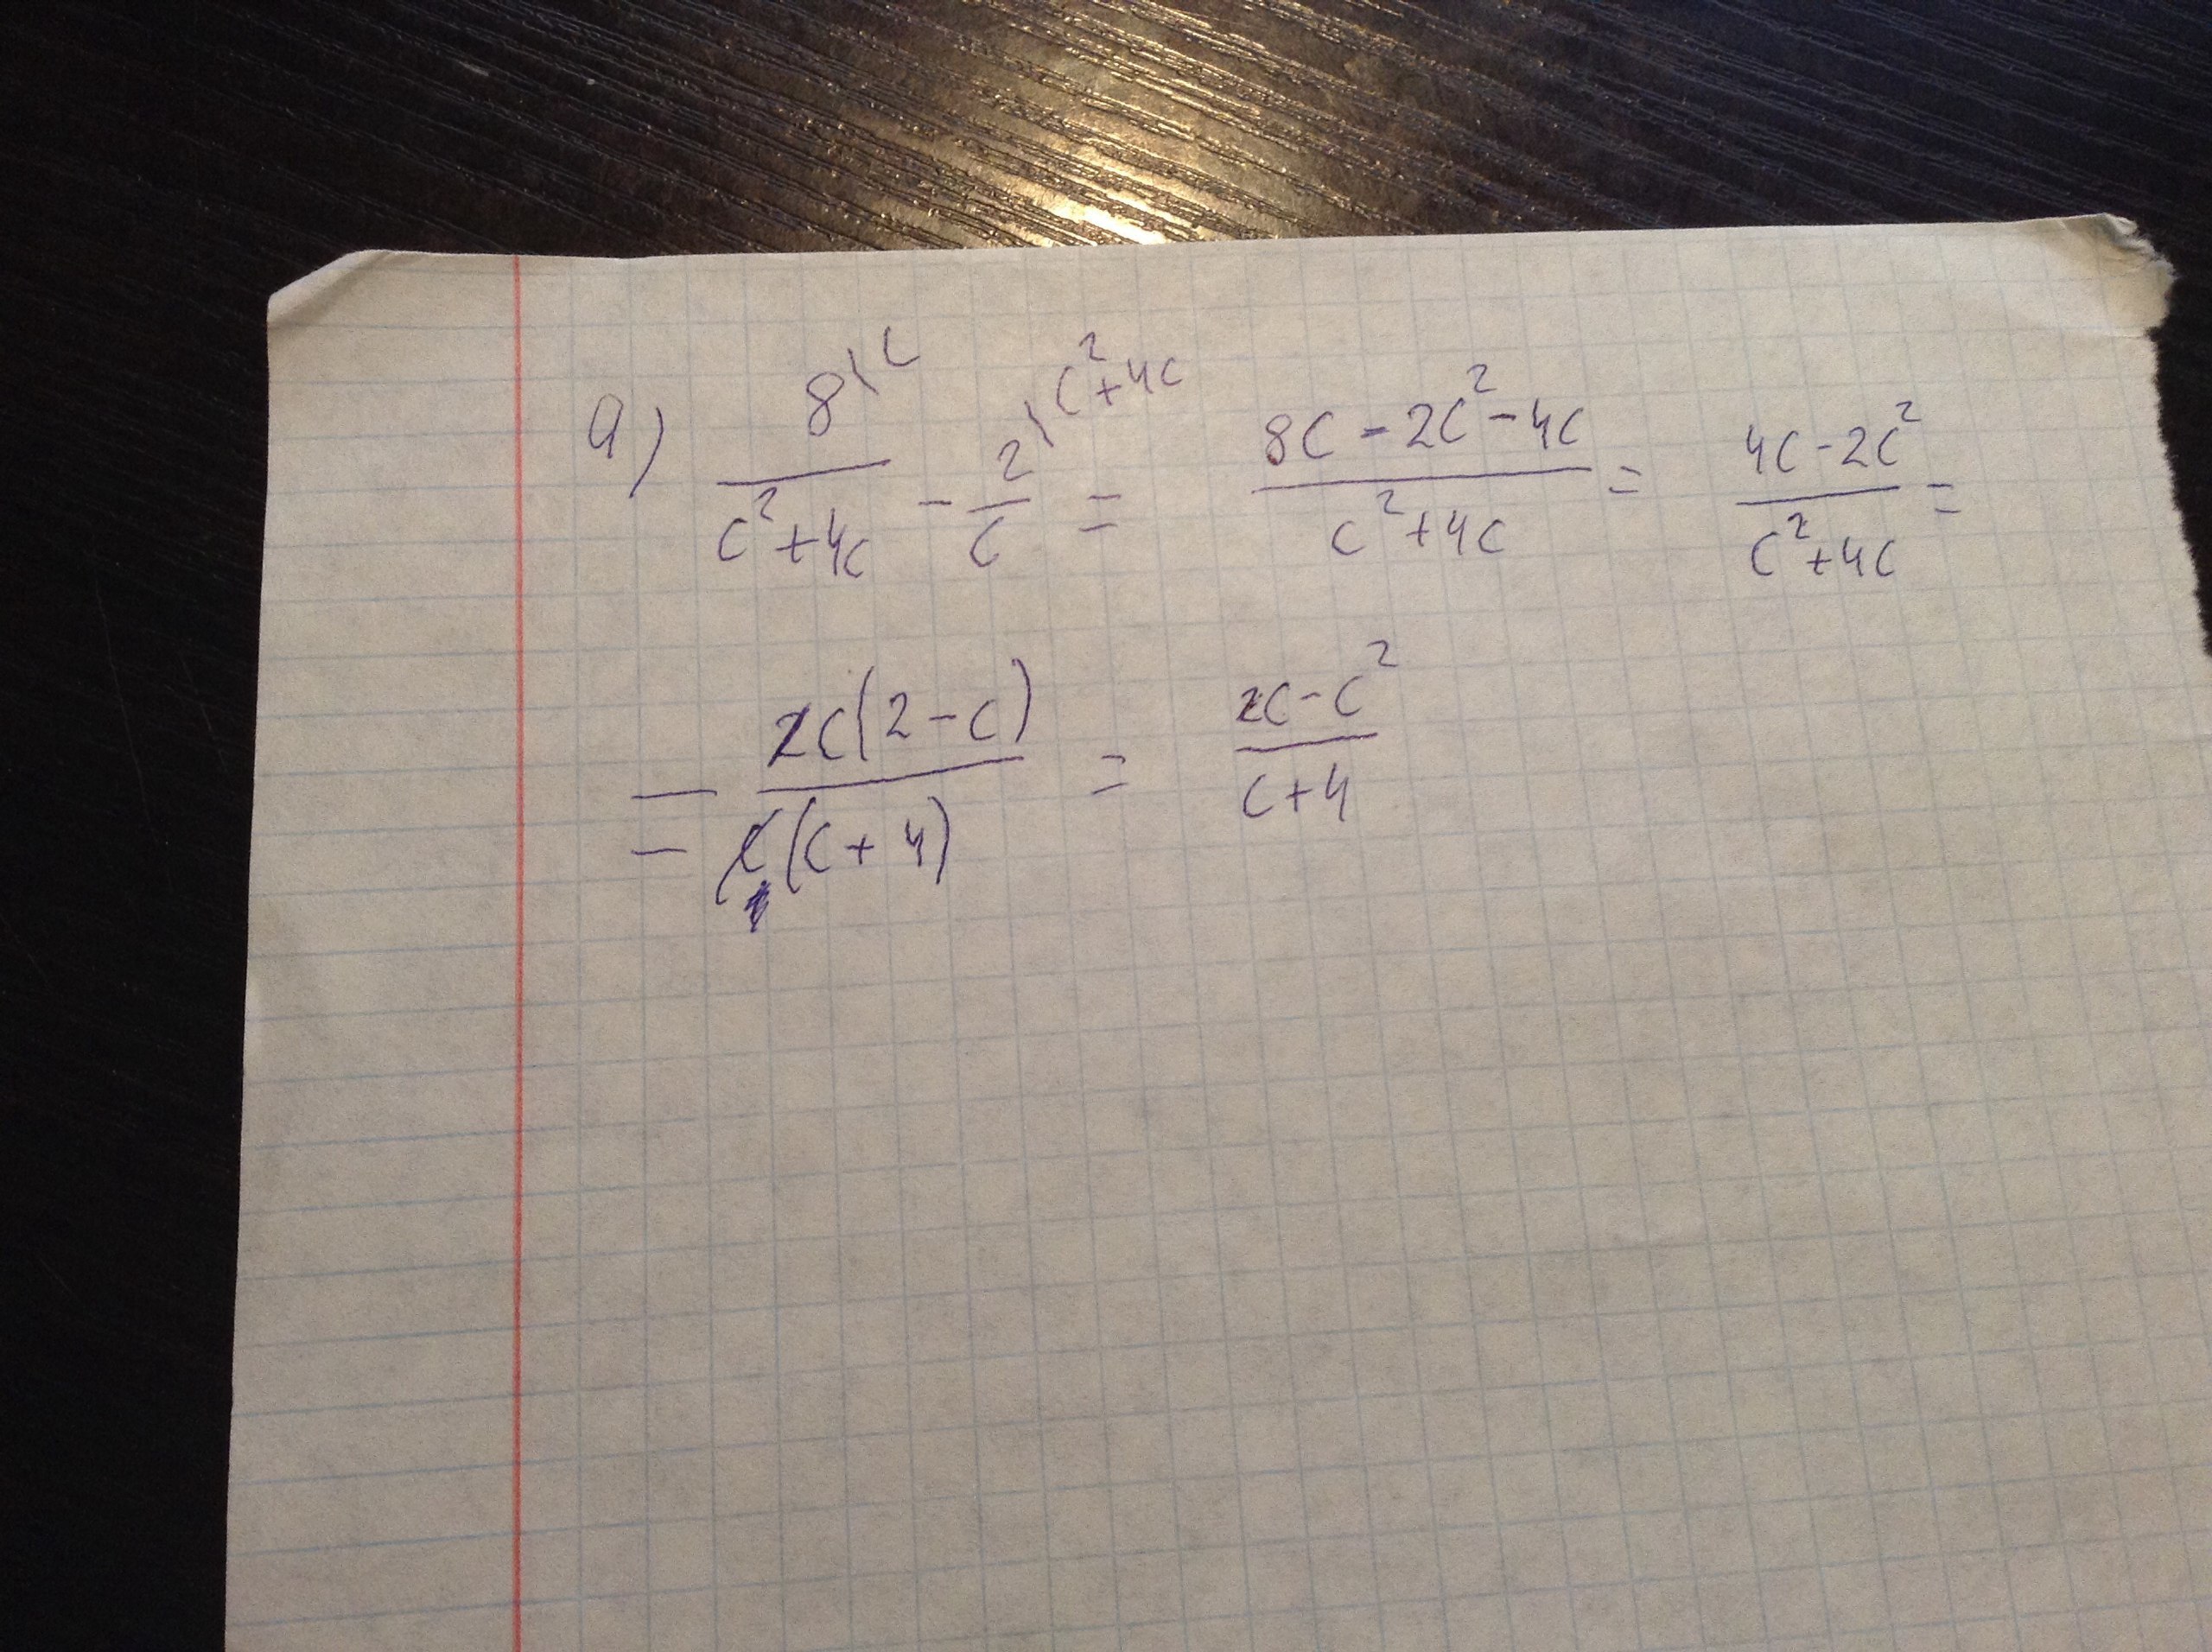 a) 8\c / c²+4c - 2\c²+4c / c = 8c-2c²-4c / c²+4c = 4c-2c² / c²+4c =
= 2c(2-c) / c(c+4) = 2c-c² / c+4